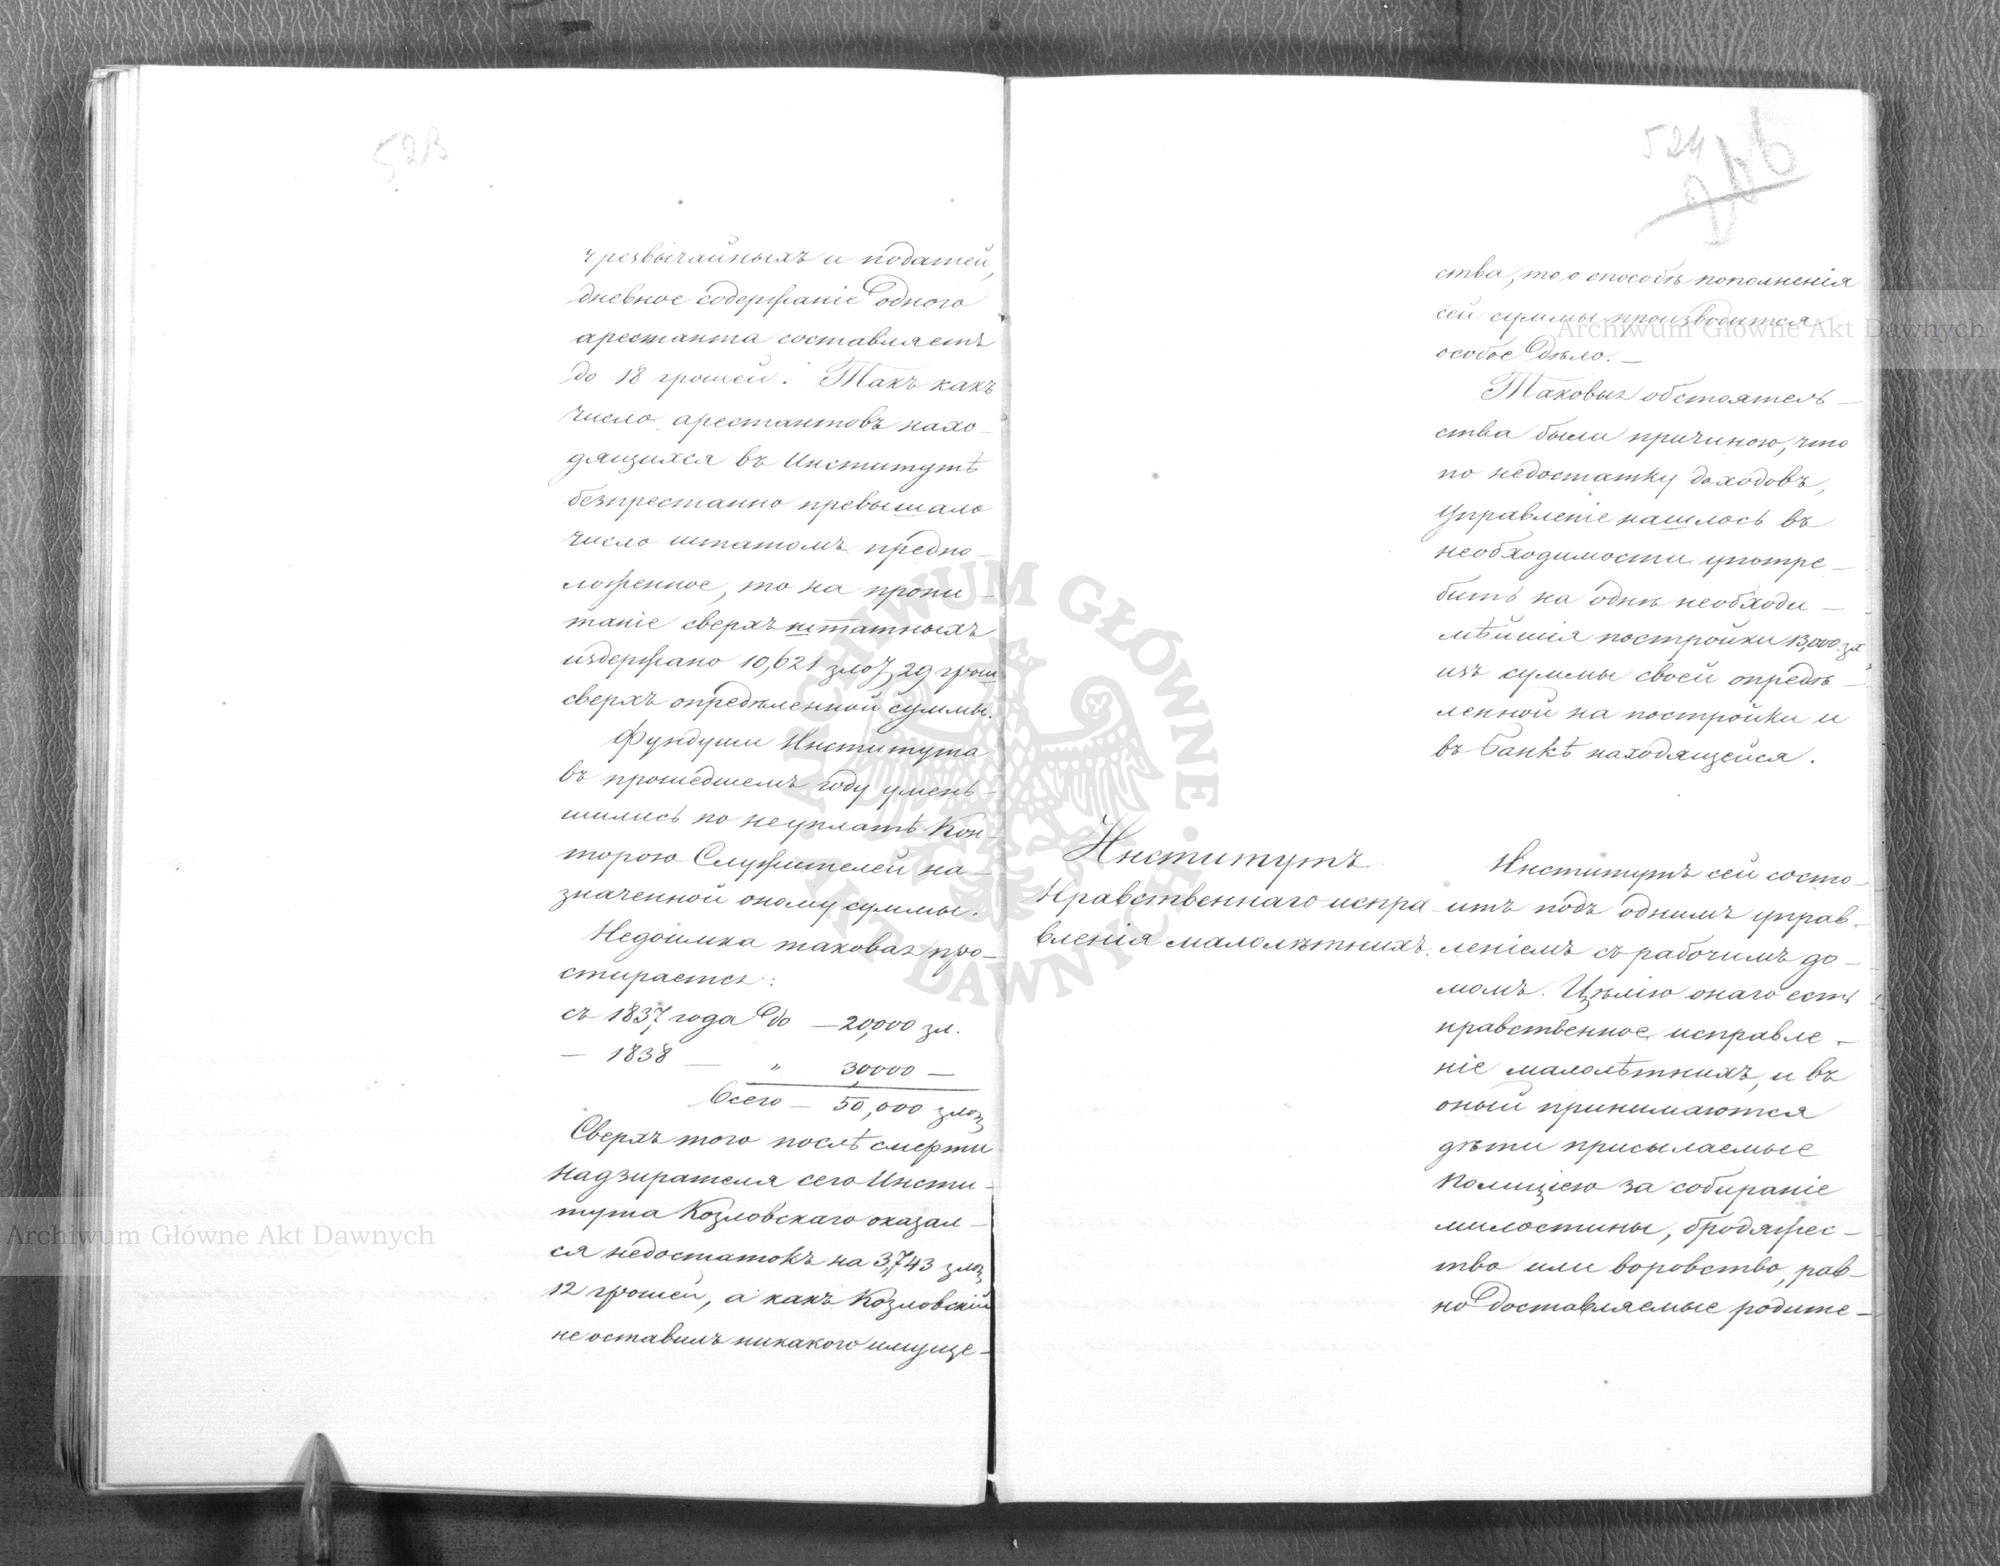 523
чрезвычайныхъ и податей,
дневное содержаніе одного
арестанта составляетъ
до 18 грошей. Такъ какъ
число арестантовъ нахо-
дящихся въ Институтѣ
безпрестанно превышало
число штатомъ предпо-
ложенное, то на пропи-
таніе сверхъ штатныхъ
издержано 10,621 злот. 29 грош.
сверхъ опредѣленной суммы.
Фундуши Института
въ прошедшемъ году умень-
шились по неуплатѣ Кон-
торою Служителей на-
значенной оному суммы.
Недоимка таковая про-
стирается:
съ 1837 года до — 20,000 зл.
— 1838 — " 30,000 —
Всего — 50,000 злот.
Сверхъ того послѣ смерти
Надзирателя сего Инсти-
тута Козловскаго оказал-
ся недостатокъ на 3,743 злот.
12 грошей, а какъ Козловскій
не оставилъ никакого имуще-
524
ства, то о способѣ пополненія
сей суммы производится
особое дѣло. —
Таковыя обстоятель-
ства были причиною, что
по недостатку доходовъ,
Управленіе нашлось въ
необходимости употре-
бить на однѣ необходи-
мѣйшія постройки 13,000 зл.
изъ суммы своей опредѣ-
ленной на постройки и
въ Банкѣ находящейся.
Институтъ
Нравственнаго испра-
вленія малолѣтнихъ.
Институтъ сей состо-
итъ подъ однимъ управ-
леніемъ съ рабочимъ до-
момъ. Цѣлію онаго есть
нравственное исправле-
ніе малолѣтнихъ, и въ
оный принимаются
дѣти присылаемые
Полиціею за собираніе
милостины, бродяжес-
тво или воровство, рав-
но доставляемые родите-
Archiwum Główne Akt Dawnych
Archiwum Główne Akt Dawnych
ARCHIWUM GŁÓWNE AKT DAWNYCH